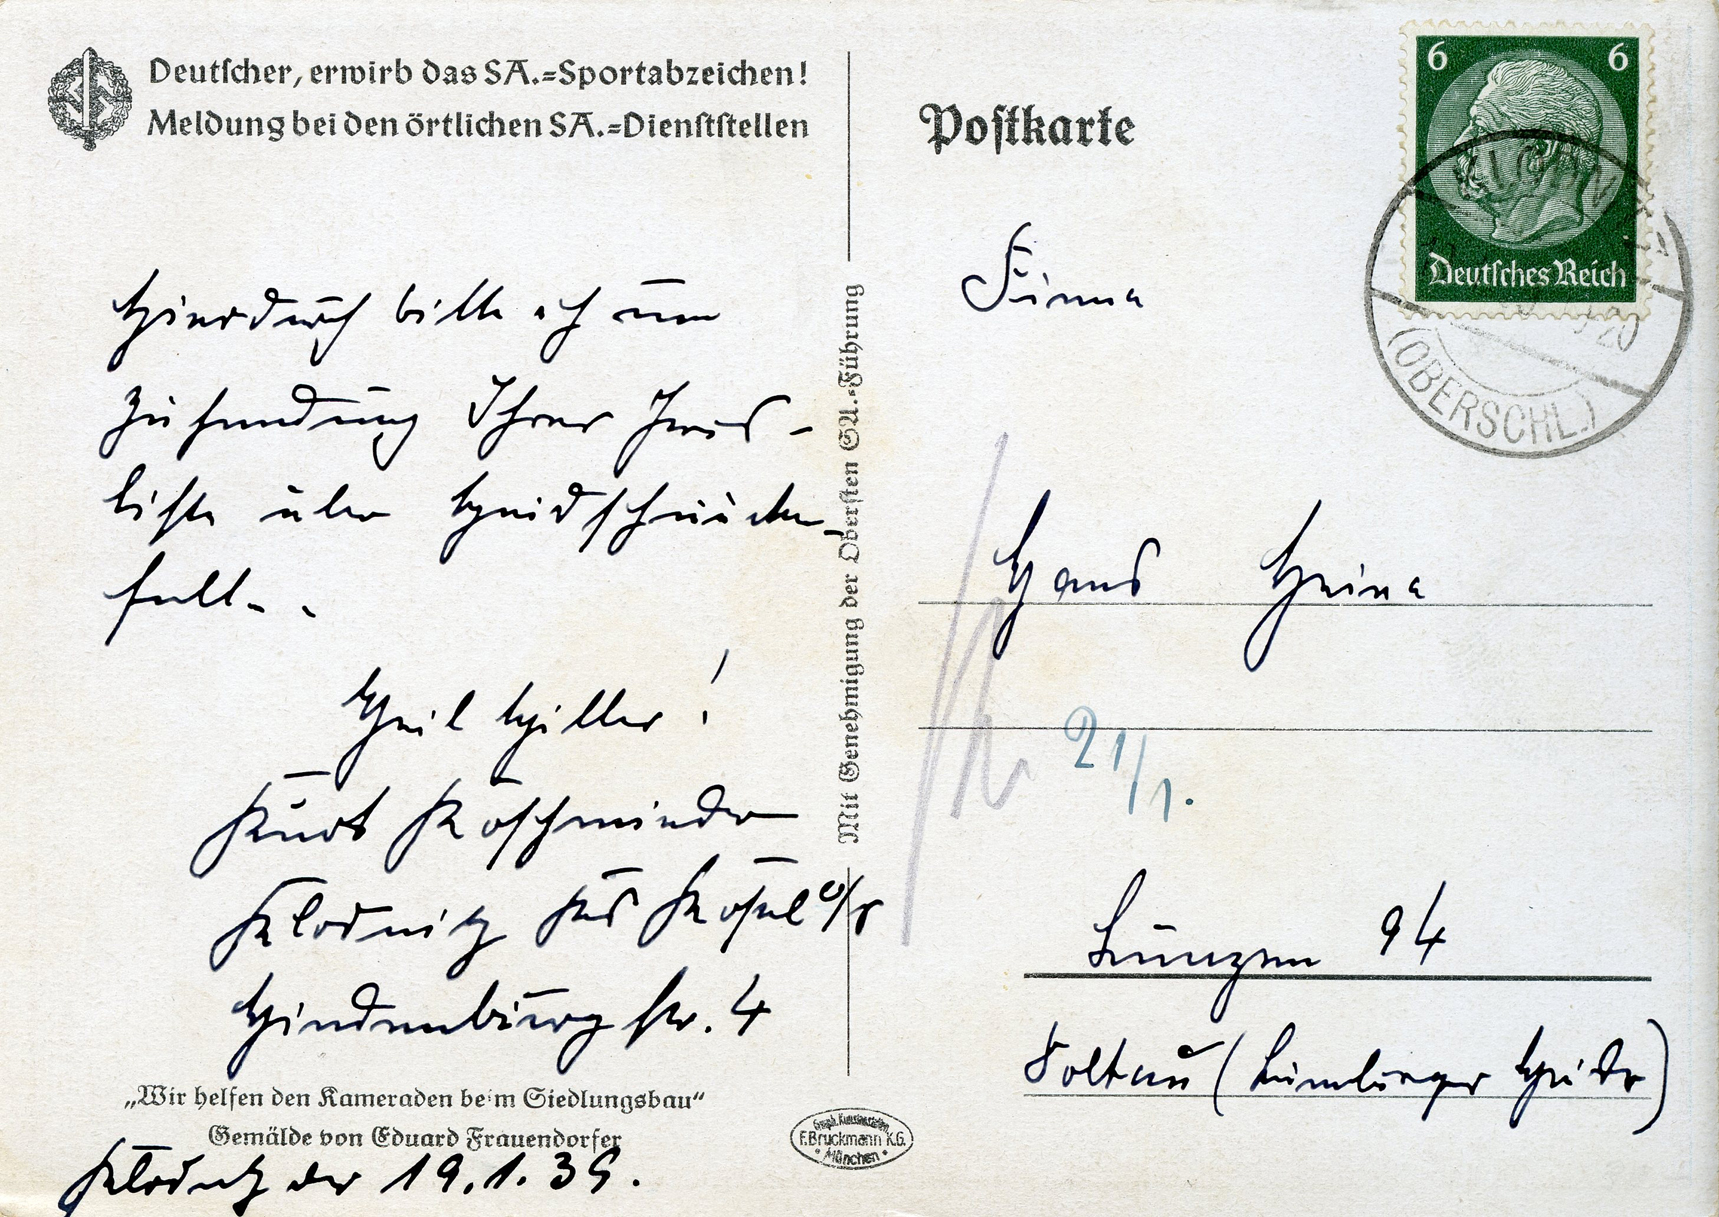 Deutscher, erwirb das SA.=Sportabzeichen!
Meldung bei den örtlichen SA.=Dienststellen
Postkarte
6 6
Deutsches Reich
(OBERSCHL.)
Hierdurch bitte ich um
Zusendung Ihrer Preis-
liste über Heidschnucken-
felle.
Heil Hitler!
Kurt Koschmieder
Klodnitz Krs Kosel O/S
Hindenburgstr. 4
Mit Genehmigung der Obersten SA.-Führung
Firma
Hans Heine
21/1.
Lünzen 94
Soltau (Lüneburger Heide)
„Wir helfen den Kameraden beim Siedlungsbau“
Gemälde von Eduard Frauendorfer
Klodnitz den 19.1.39.
Graph. Kunstanstalten
F. Bruckmann K.G.
München